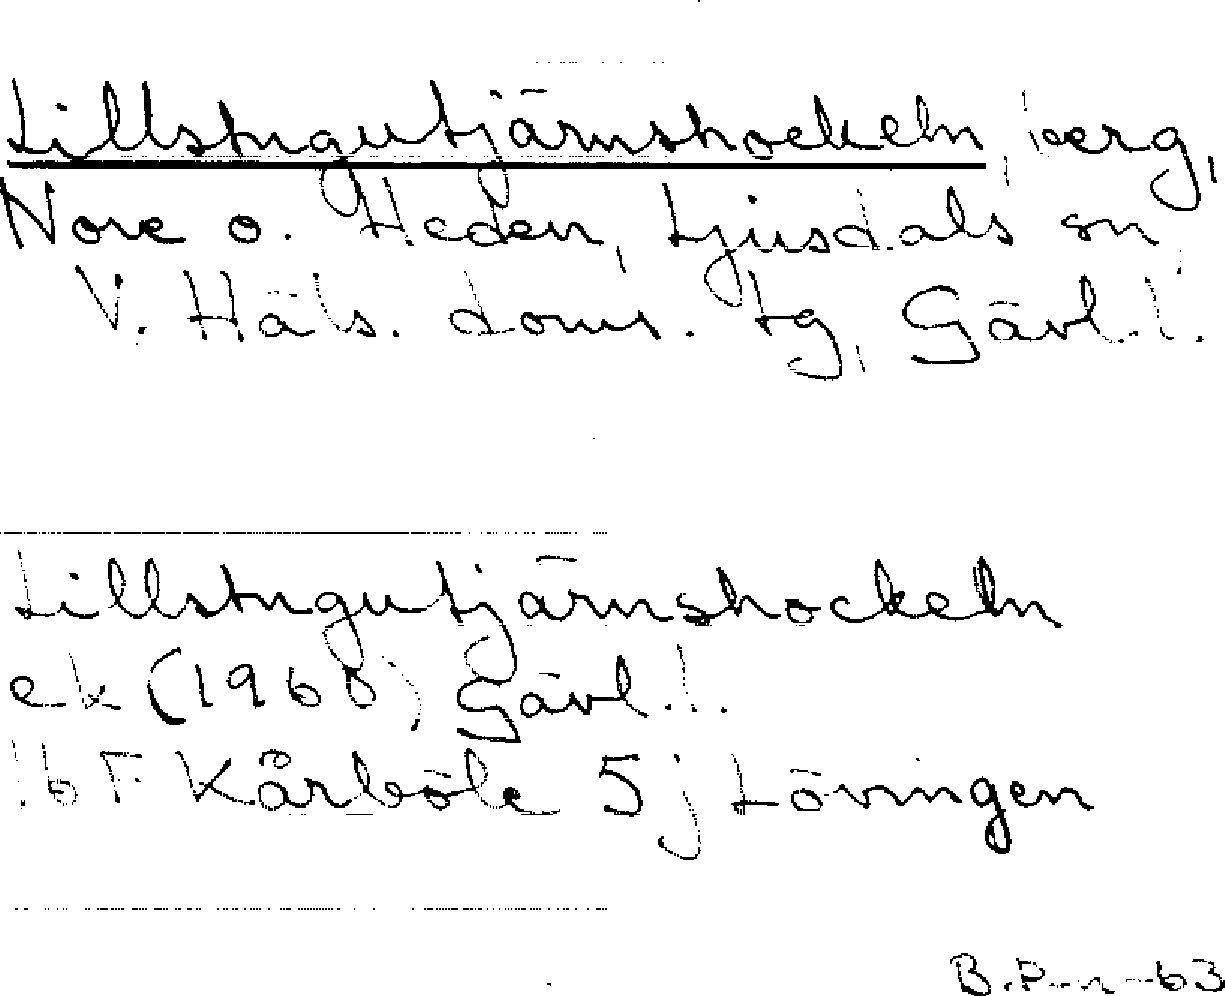 Lillstugutjärnshockeln, berg,
Nore o. Heden, Ljusdals sn
V. Häls. doms. tg, Gävl. l.
Lillstugutjärnshockeln
ek (1960) Gävl. l.
16 F Kårböle 5 j Lövingen
B.P-n -63